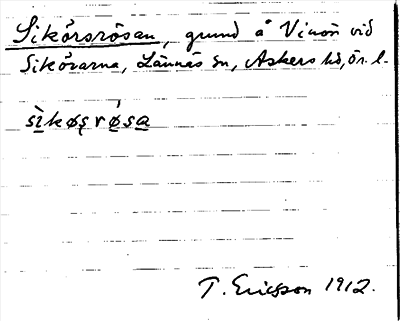 Sikörsrösan, grund å Vinön vid
Siköarna, Lännäs sn, Askers hd, Ör. l.
sìkøs̨rǿsa
T. Ericsson 1912.